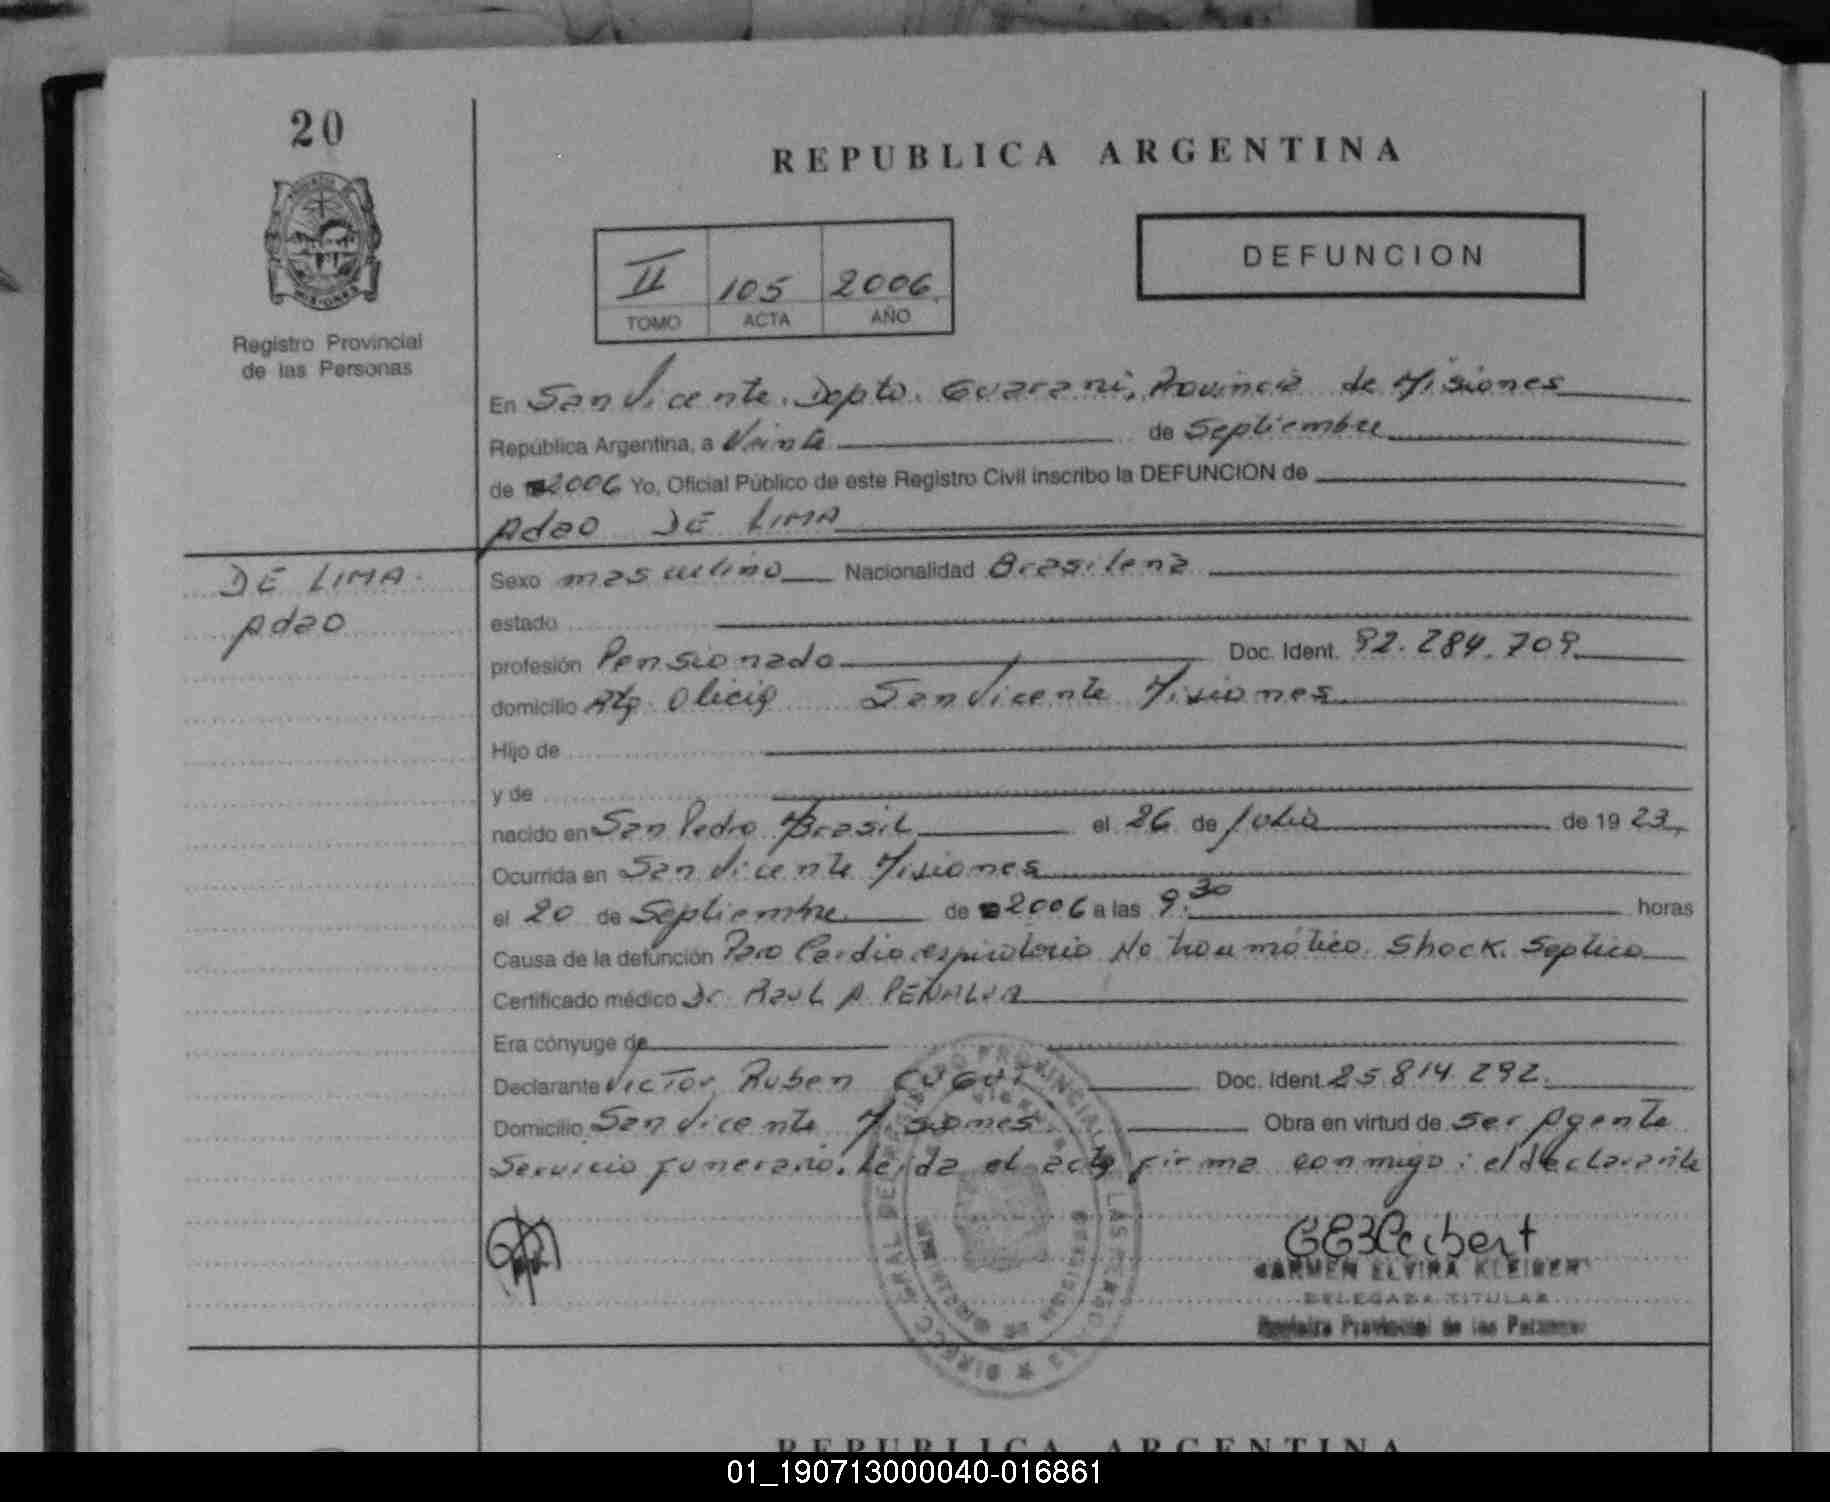 20
REPUBLICA ARGENTINA
MISIONES
Registro Provincial
de las Personas
II 105 2006
TOMO ACTA AÑO
DEFUNCION
En San Vicente. Depto. Guarani, Provincia de Misiones
República Argentina, a Veinte de Septiembre
de 2006 Yo, Oficial Público de este Registro Civil inscribo la DEFUNCION de
Adao DE LIMA
DE LIMA.
Adao
Sexo masculino Nacionalidad Brasilena
estado
profesión Pensionado Doc. Ident. 92.284.709
domicilio San Vicente Misiones
Hijo de
y de
nacido en San Pedro Brasil el 26 de Julio de 19 23
Ocurrida en San Vicente Misiones
el 20 de Septiembre de 2006 a las 9:30 horas
Causa de la defunción Paro Cardiorespiratorio No traumático. Shock. Septico
Certificado médico Dr. Raul A. PEÑALVA
Era cónyuge de
Declarante Victor Ruben Doc. Ident. 25.814.292.
Domicilio San Vicente Misiones. Obra en virtud de ser Agente
Servicio funerario. Leida el acta firma conmigo: el declarante
CEKleibert
CARMEN ELVIRA KLEIBERT
DELEGADA TITULAR
Registro Provincial de las Personas
REPUBLICA ARGENTINA
01_190713000040-016861